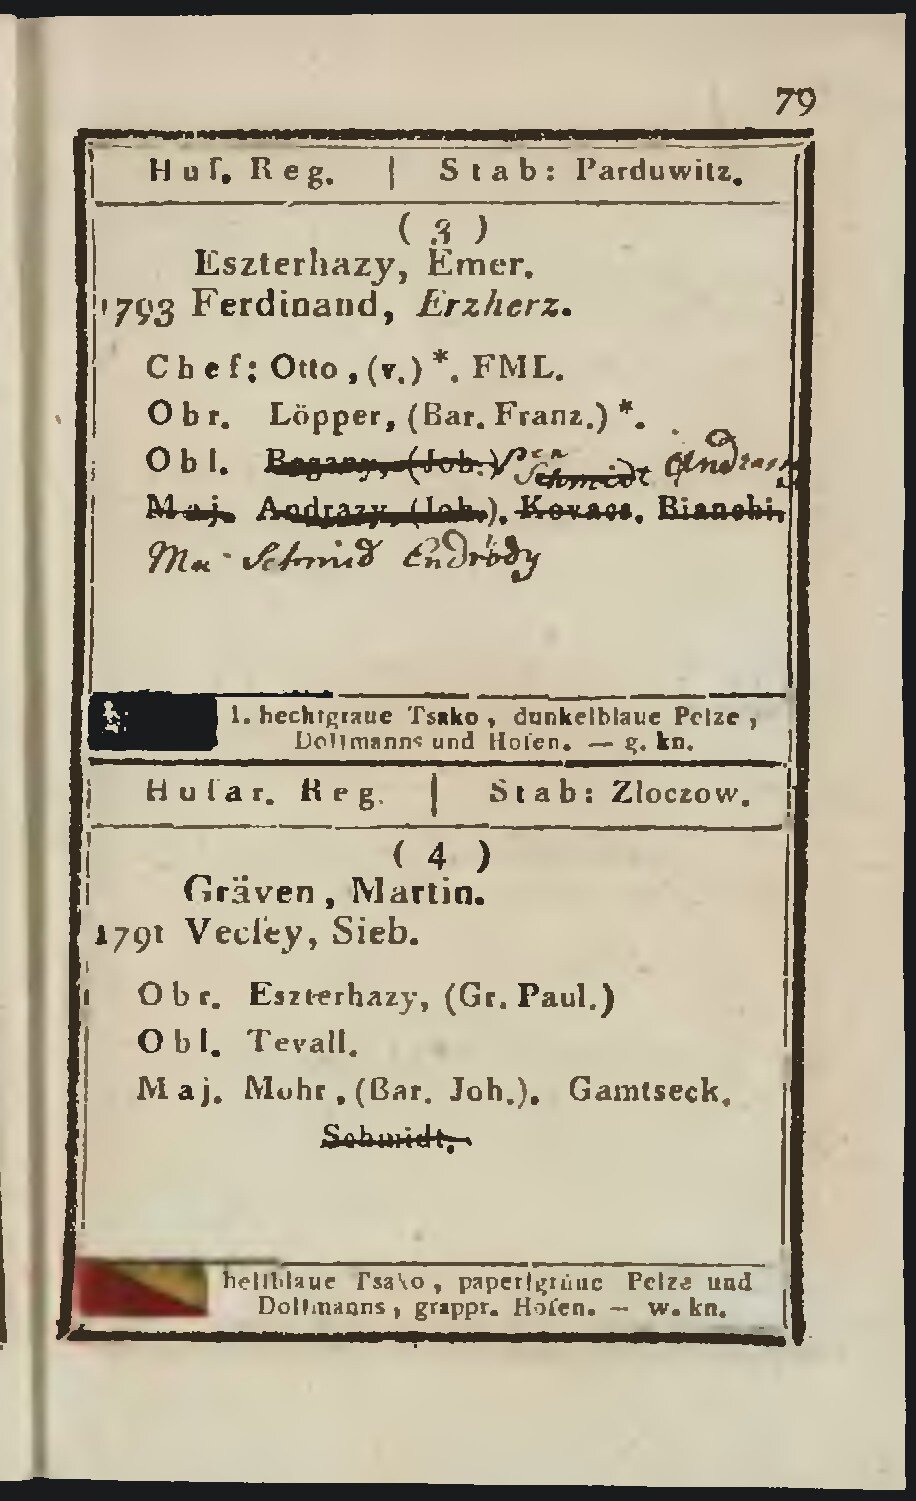 79
Huſ. Reg. | Stab: Parduwitz.
( 3 )
Eszterhazy, Emer.
1793 Ferdinand, Erzherz.
Chef: Otto, (v.) *. FML.
Obr. Löpper, (Bar. Franz.) *.
Obl. Bogany, (Joh.) Schmidt Andrasy
Maj. Andrazy, (Joh.), Kovacs, Bianchi,
Schmid Endrödy
l. hechtgraue Tsako, dunkelblaue Pelze,
Dollmanns und Hoſen. — g. kn.
Huſar. Reg. | Stab: Zloczow.
( 4 )
Gräven, Martin.
1791 Vecſey, Sieb.
Obr. Eszterhazy, (Gr. Paul.)
Obl. Tevall.
Maj. Mohr, (Bar. Joh.), Gamtseck,
Schmidt.
hellblaue Tsako, paperlgrüne Pelze und
Dollmanns, grappr. Hoſen. — w. kn.